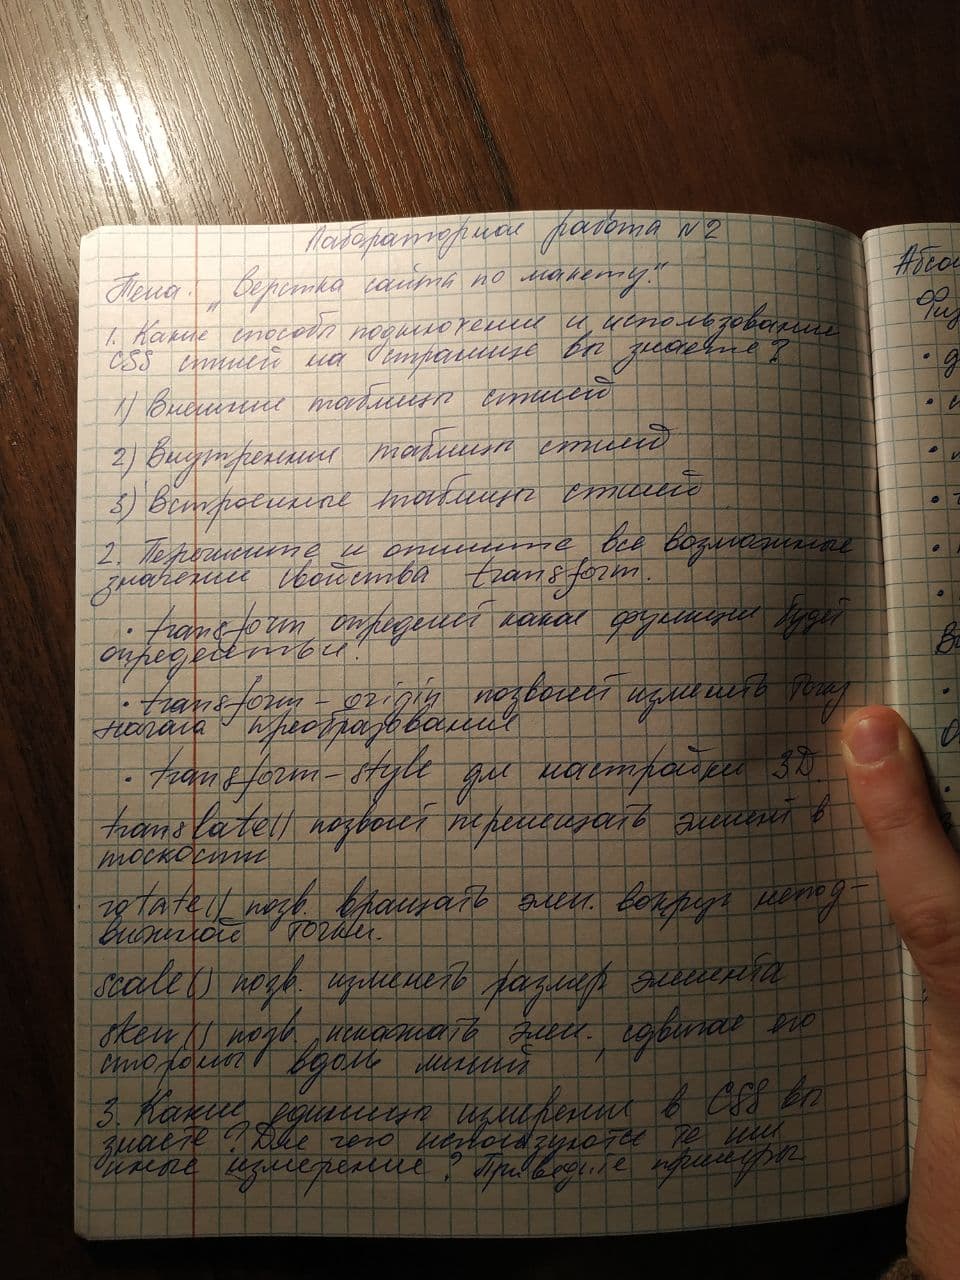 Лабораторная работа №2
Тема. „Верстка сайта по макету."
1. Какие способы подключения и использование
CSS стилей на странице вы знаете?
1) Внешние таблицы стилей
2) Внутренние таблицы стилей
3) Встроенные таблицы стилей
2. Перечислите и опишите все возможные
значения свойства transform.
• transform определяет какая функция будет
• transform-origin позволяет изменять точку
начала преобразования
• transform-style для настройки 3D.
translate() позволяет перемещать элемент в
плоскости
rotate() позв. вращать элем. вокруг непод-
вижной точки.
scale() позв. изменять размер элемента
skew() позв. искажать элем., сдвигая его
стороны вдоль линий
3. Какие единицы измерения в CSS вы
знаете? Для чего используются те или
иные измерение? Приведите примеры
Абсол
Физ